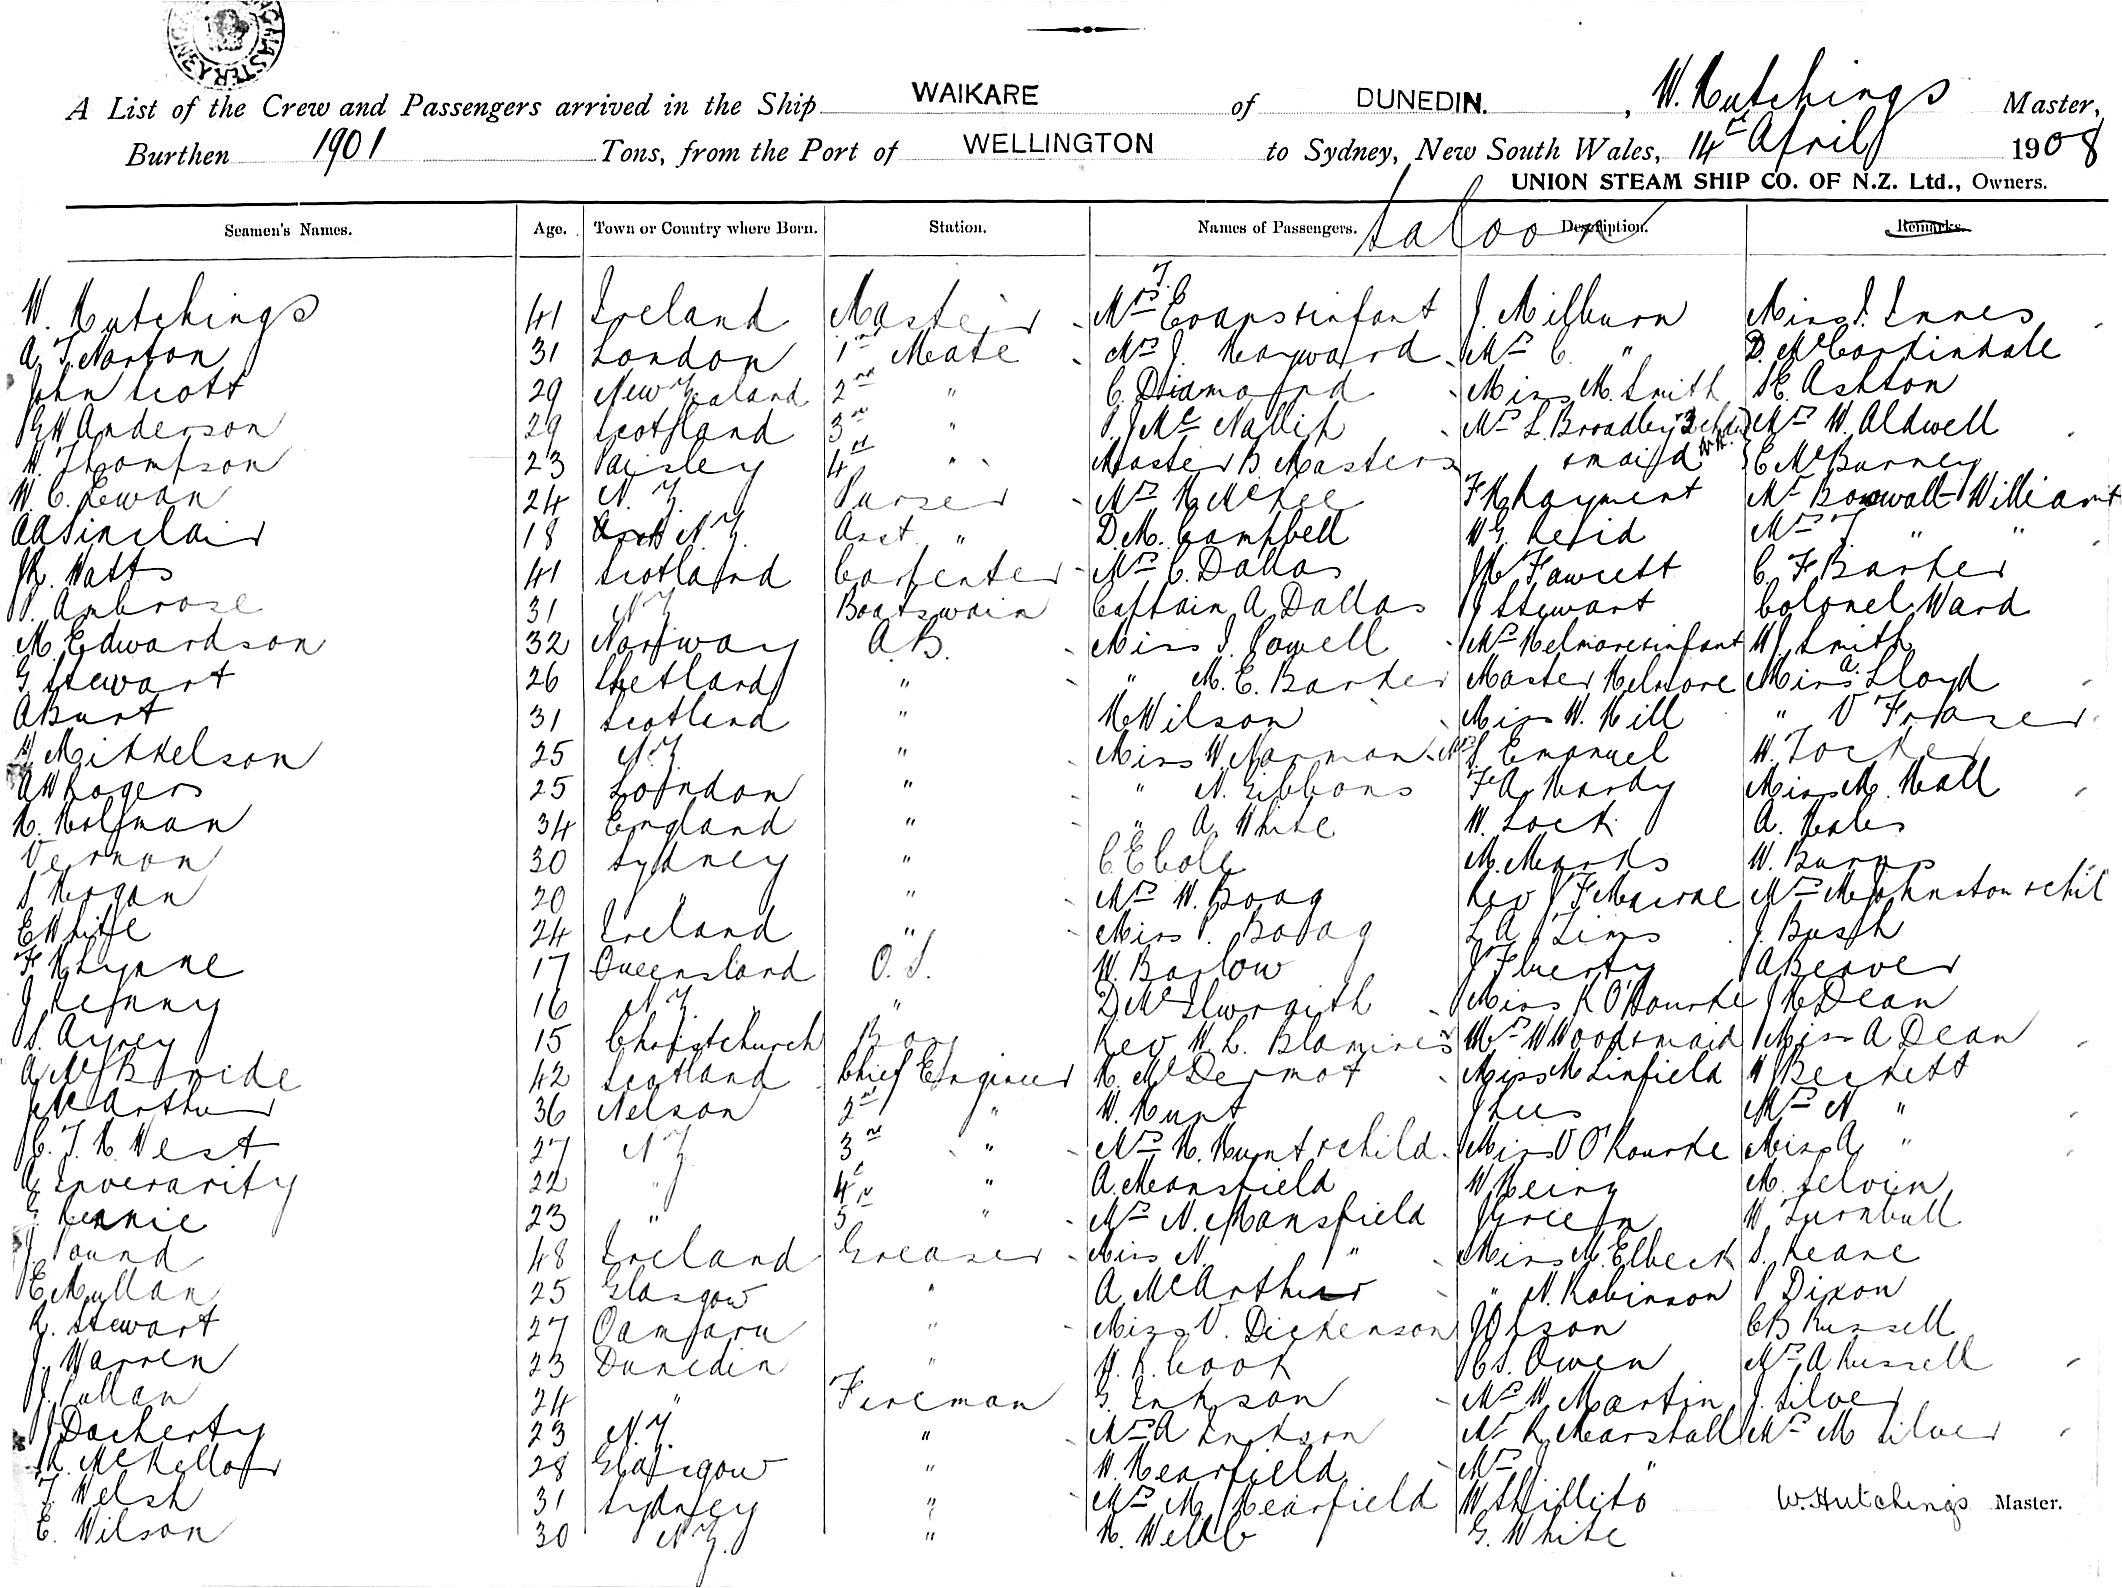 A List of the Crew and Passengers arrived in the Ship WAIKARE of DUNEDIN. , W. Hutchings Master,
Burthen 1901 Tons, from the Port of WELLINGTON to Sydney, New South Wales, 14th April 1908
UNION STEAM SHIP CO. OF N.Z. Ltd., Owners.
Saloon
Seamen's Names. Age. Town or Country where Born. Station. Names of Passengers. Description. Remarks.
W. Hutchings 41 Ireland Master Mrs T. Evans & infant J. Milburn Miss I. Innes
A. T. Norton 31 London 1st Mate Mrs J. Hayward Mrs C. " D. McCorkindale
John Scott 29 New Zealand 2nd " C. Diamond Miss M. Smith H. Ashton
Anderson 29 Scotland 3rd " P. J. McNallih Mrs L. Broadley & 2 chdn Mrs W. Aldwell
W. Thompson 23 Paisley 4th " Master B. Masters & maid C. McBurney
W. C. Lewan 24 N.Z. Purser Mrs H. McKee F H Rayment Mr Boxwall-Williams
A A Sinclair 18 N.Z. Asst. " D. M. Campbell W G. Reid Mrs J. " "
Watts 41 Scotland Carpenter Mrs C. Dallas Fawcett C. F Barker
P. Ambrose 31 N.Z. Boatswain Captain A Dallas J Stewart Colonel Ward
M. Edwardson 32 Norway A.B. Miss J. Powell Mrs Helmore & infant W J Smith
G Stewart 26 Shetland " " M. E. Barker Master Helmore Miss A. Lloyd
A Burt 31 Scotland " H Wilson Miss W. Hill " V Frazer
Mikkelson 25 N.Z. " Miss W. Norman Mrs S Emanuel W. Tocker
A W Rogers 25 London " " N. Gibbons F A. Hardy Miss M. Hall
H. Holman 34 England " " A. White W. Lock A. Hales
Vernon 30 Sydney " C E Cole M. Marks W. Burns
S Hogan 20 " " Mrs W. Boag Rev J F Mairne Mrs M Johnston & chil
E White 24 Ireland " Miss P. Boag L A Sims J. Bush
F Rhynne 17 Queensland O.S. W. Barlow J Flverty A Beaver
J Kenny 16 N.Z. " D. McIlwraith Miss K O'Rourke J H Dean
S. Ayrey 15 Christchurch Boy Rev W. L. Blamires Mrs W Wood & maid Miss A Dean
A McBride 42 Scotland Chief Engineer H. McDermot Miss M Linfield W Beckett
J McArthur 36 Nelson 2nd " W. Hunt J Lees Mrs N "
C. T. H. West 27 N Z 3rd " Mrs H. Hunt & child Miss V O'Rourke Miss A "
G Inverarity 22 " 4th " A. Mansfield W Heing M. Selvin
G. Rennie 23 " 5th " Mrs N. Mansfield J Green W. Turnbull
J Pound 48 Ireland Greaser Miss N. " Miss M. Elbeck S. Keane
E Mullan 25 Glasgow " A McArthur " N. Robinson P Dixon
R. Stewart 27 Oamaru " Miss V. Dickenson J Olson C B Russell
J. Warren 23 Dunedin " H. R. Cook C S. Owen Mrs A Russell
J. Cullan 24 " Fireman G. Inkson Mrs W. Martin J. Silver
J Docherty 23 N.Z. " Mrs A Inkson Mr R Marshall Mrs M Silver
R. McKellar 28 Glasgow " W. Hearfield Mrs J "
T Welsh 31 Sydney " Mrs M. Hearfield W Shillito W. Hutchings Master.
E. Wilson 30 N.Z. " H. Webb G. White